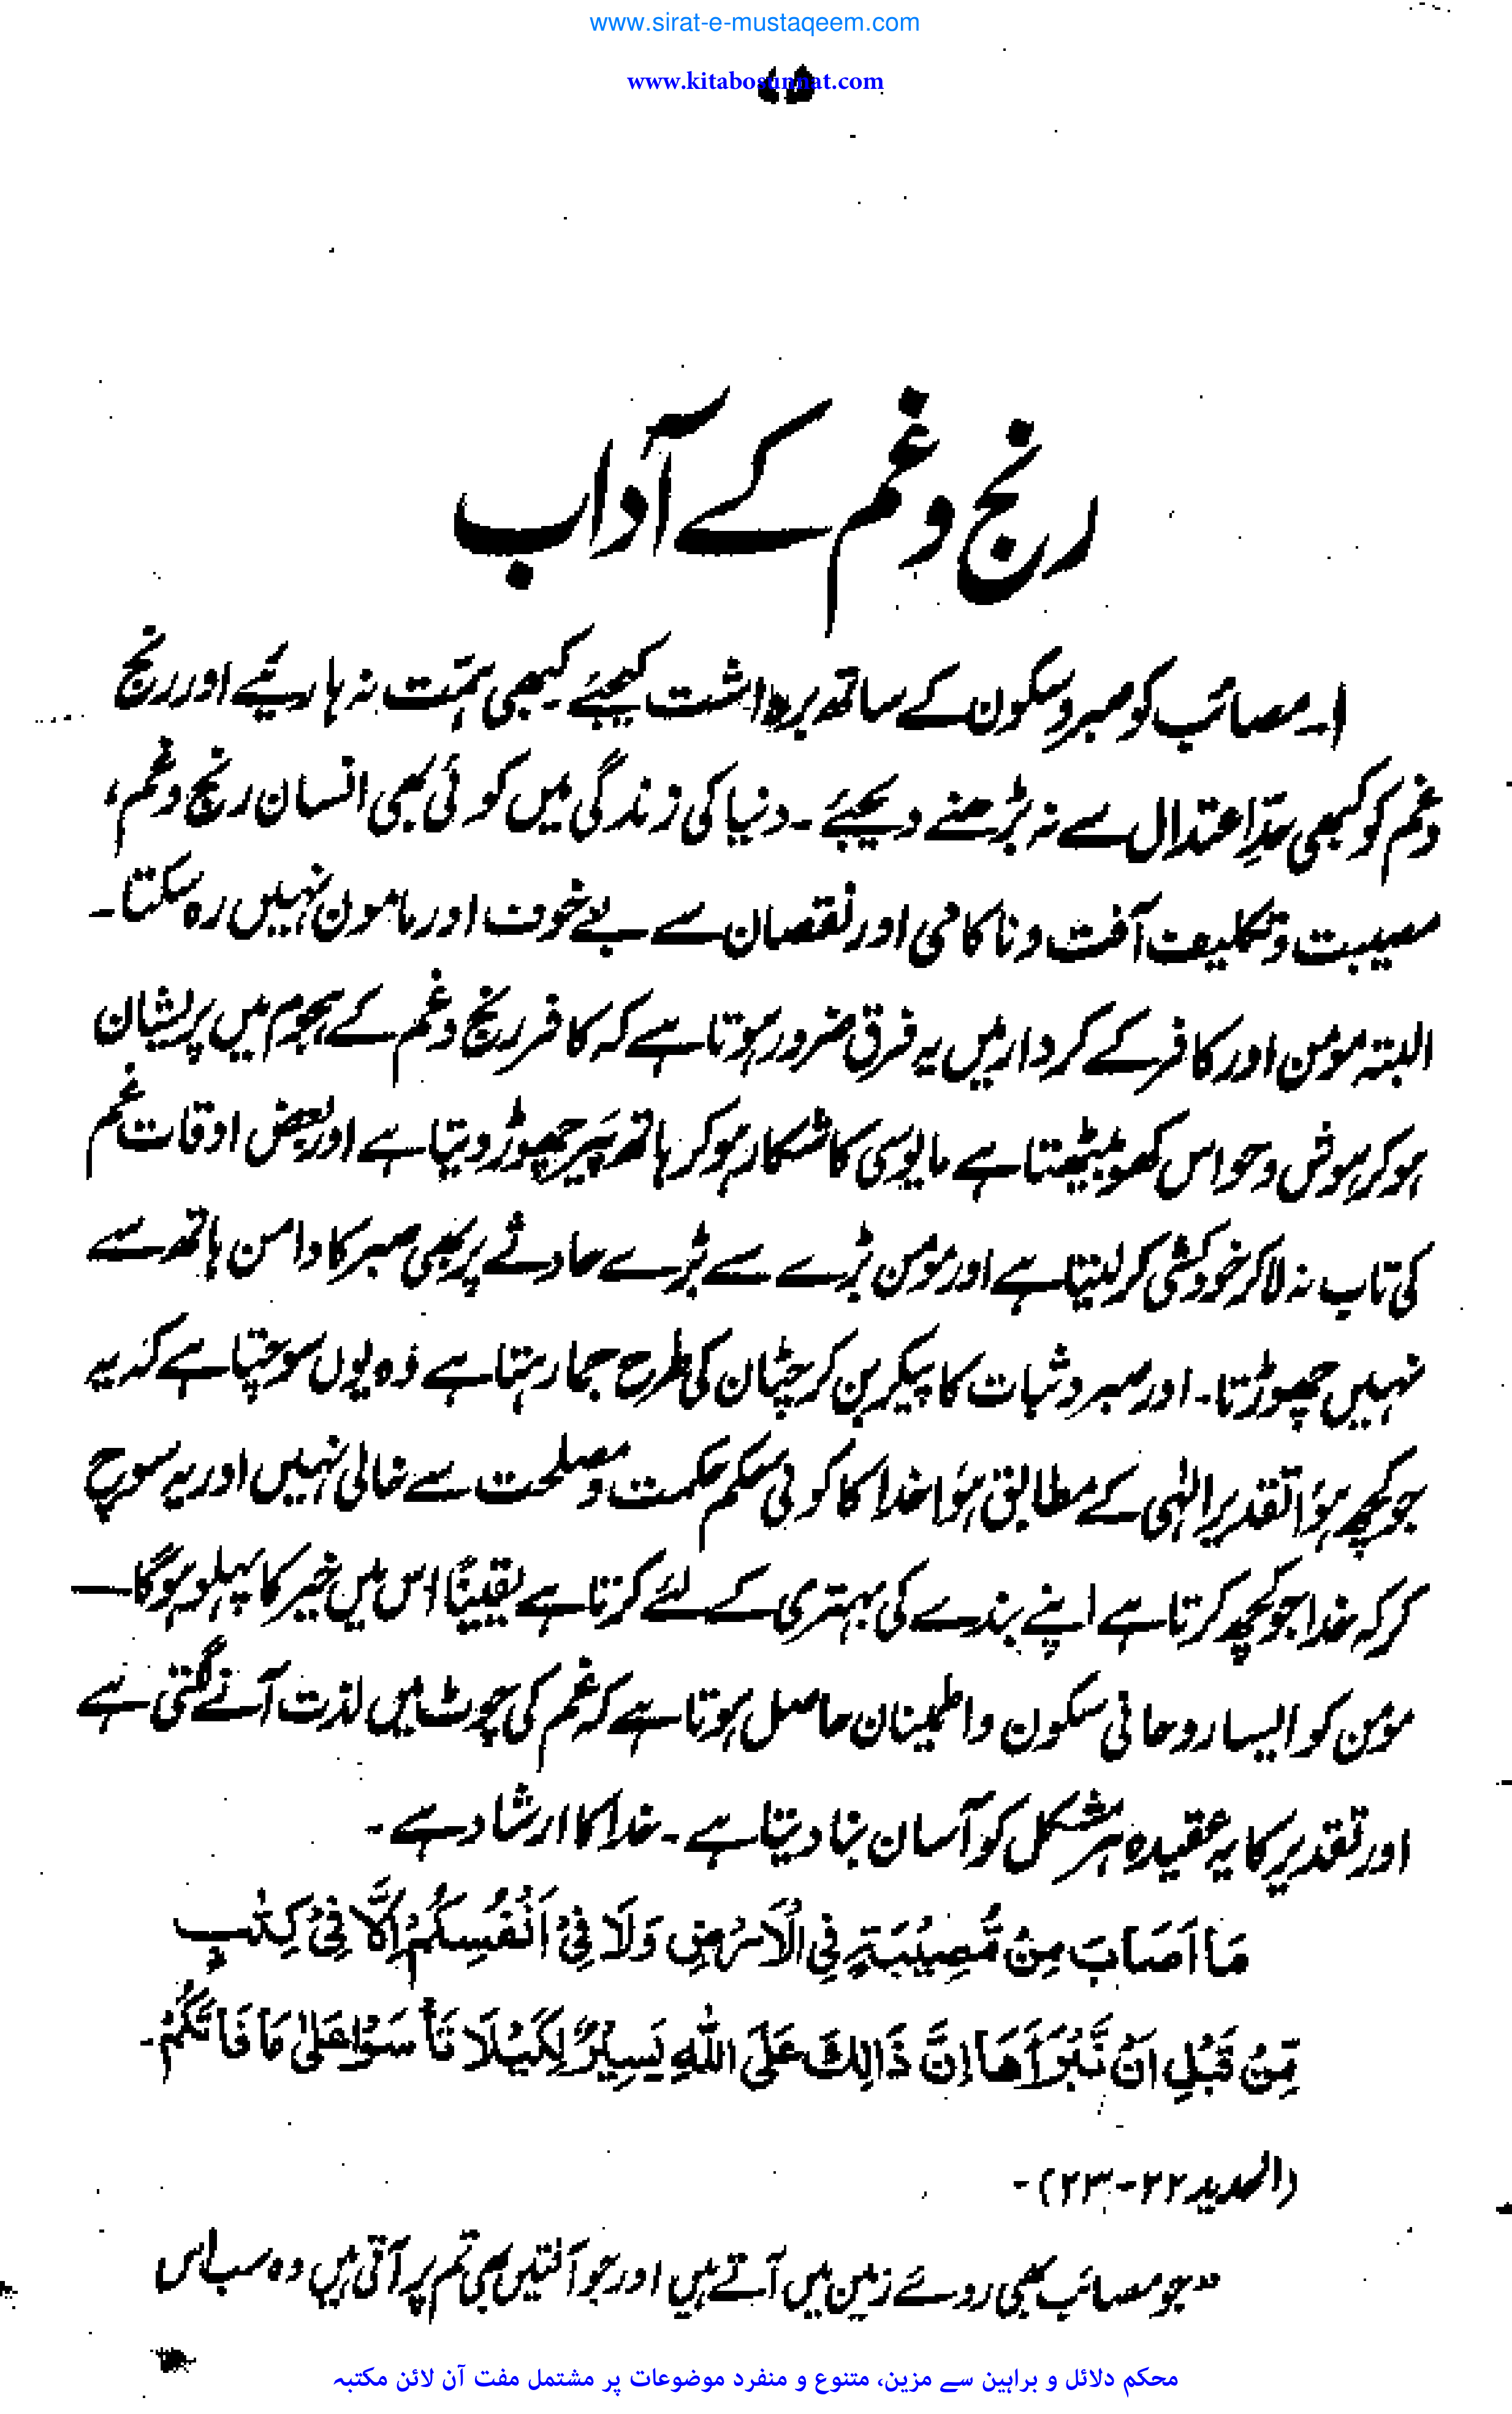 www.sirat-e-mustaqeem.com
www.kitabosunnat.com
رنج وغم کے آداب
۱۔ مصائب کو صبر و سکون کے ساتھ برداشت کیجئے۔ کبھی ہمّت نہ ہاریئے اور رنج
وغم کو کبھی حدِّ اعتدال سے نہ بڑھنے دیجئے۔ دنیا کی زندگی میں کوئی بھی انسان رنج و غم،
مصیبت و تکلیف آفت و ناکامی اور نقصان سے بے خوف اور مامون نہیں رہ سکتا۔
البتہ مومن اور کافر کے کردار میں یہ فرق ضرور ہوتا ہے کہ کافر رنج و غم کے ہجوم میں پریشان
ہو کر ہوش و حواس کھو بیٹھتا ہے مایوسی کا شکار ہو کر ہاتھ پَیر چھوڑ دیتا ہے اور بعض اوقات غم
کی تاب نہ لا کر خودکشی کر لیتا ہے اور مومن بڑے سے بڑے حادثے پر بھی صبر کا دامن ہاتھ سے
نہیں چھوڑتا۔ اور صبر و ثبات کا پیکر بن کر چٹان کی طرح جما رہتا ہے وہ یوں سوچتا ہے کہ یہ
جو کچھ ہؤا تقدیر الٰہی کے مطابق ہؤا خدا کا کوئی حکم حکمت و مصلحت سے خالی نہیں اور یہ سوچ
کر کہ خدا جو کچھ کرتا ہے اپنے بندے کی بہتری کے لئے کرتا ہے یقیناً اس میں خیر کا پہلو ہوگا —
مومن کو ایسا روحانی سکون و اطمینان حاصل ہوتا ہے کہ غم کی چوٹ میں لذت آنے لگتی ہے
اور تقدیر کا یہ عقیدہ ہر مشکل کو آسان بنا دیتا ہے۔ خدا کا ارشاد ہے۔
مَا اَصَابَ مِنْ مُّصِیْبَۃٍ فِی الْاَرْضِ وَلَا فِیْ اَنْفُسِکُمْ اِلَّا فِیْ کِتٰبٍ
مِّنْ قَبْلِ اَنْ نَّبْرَأَهَا اِنَّ ذَالِكَ عَلَى اللّٰهِ یَسِیْرٌ لِکَیْلَا تَأْسَوْا عَلٰی مَا فَاتَکُمْ۔
(الحدید ۲۲-۲۳)۔
”جو مصائب بھی روئے زمین میں آتے ہیں اور جو آفتیں بھی تم پر آتی ہیں وہ سب اس
محکم دلائل و براہین سے مزین، متنوع و منفرد موضوعات پر مشتمل مفت آن لائن مکتبہ